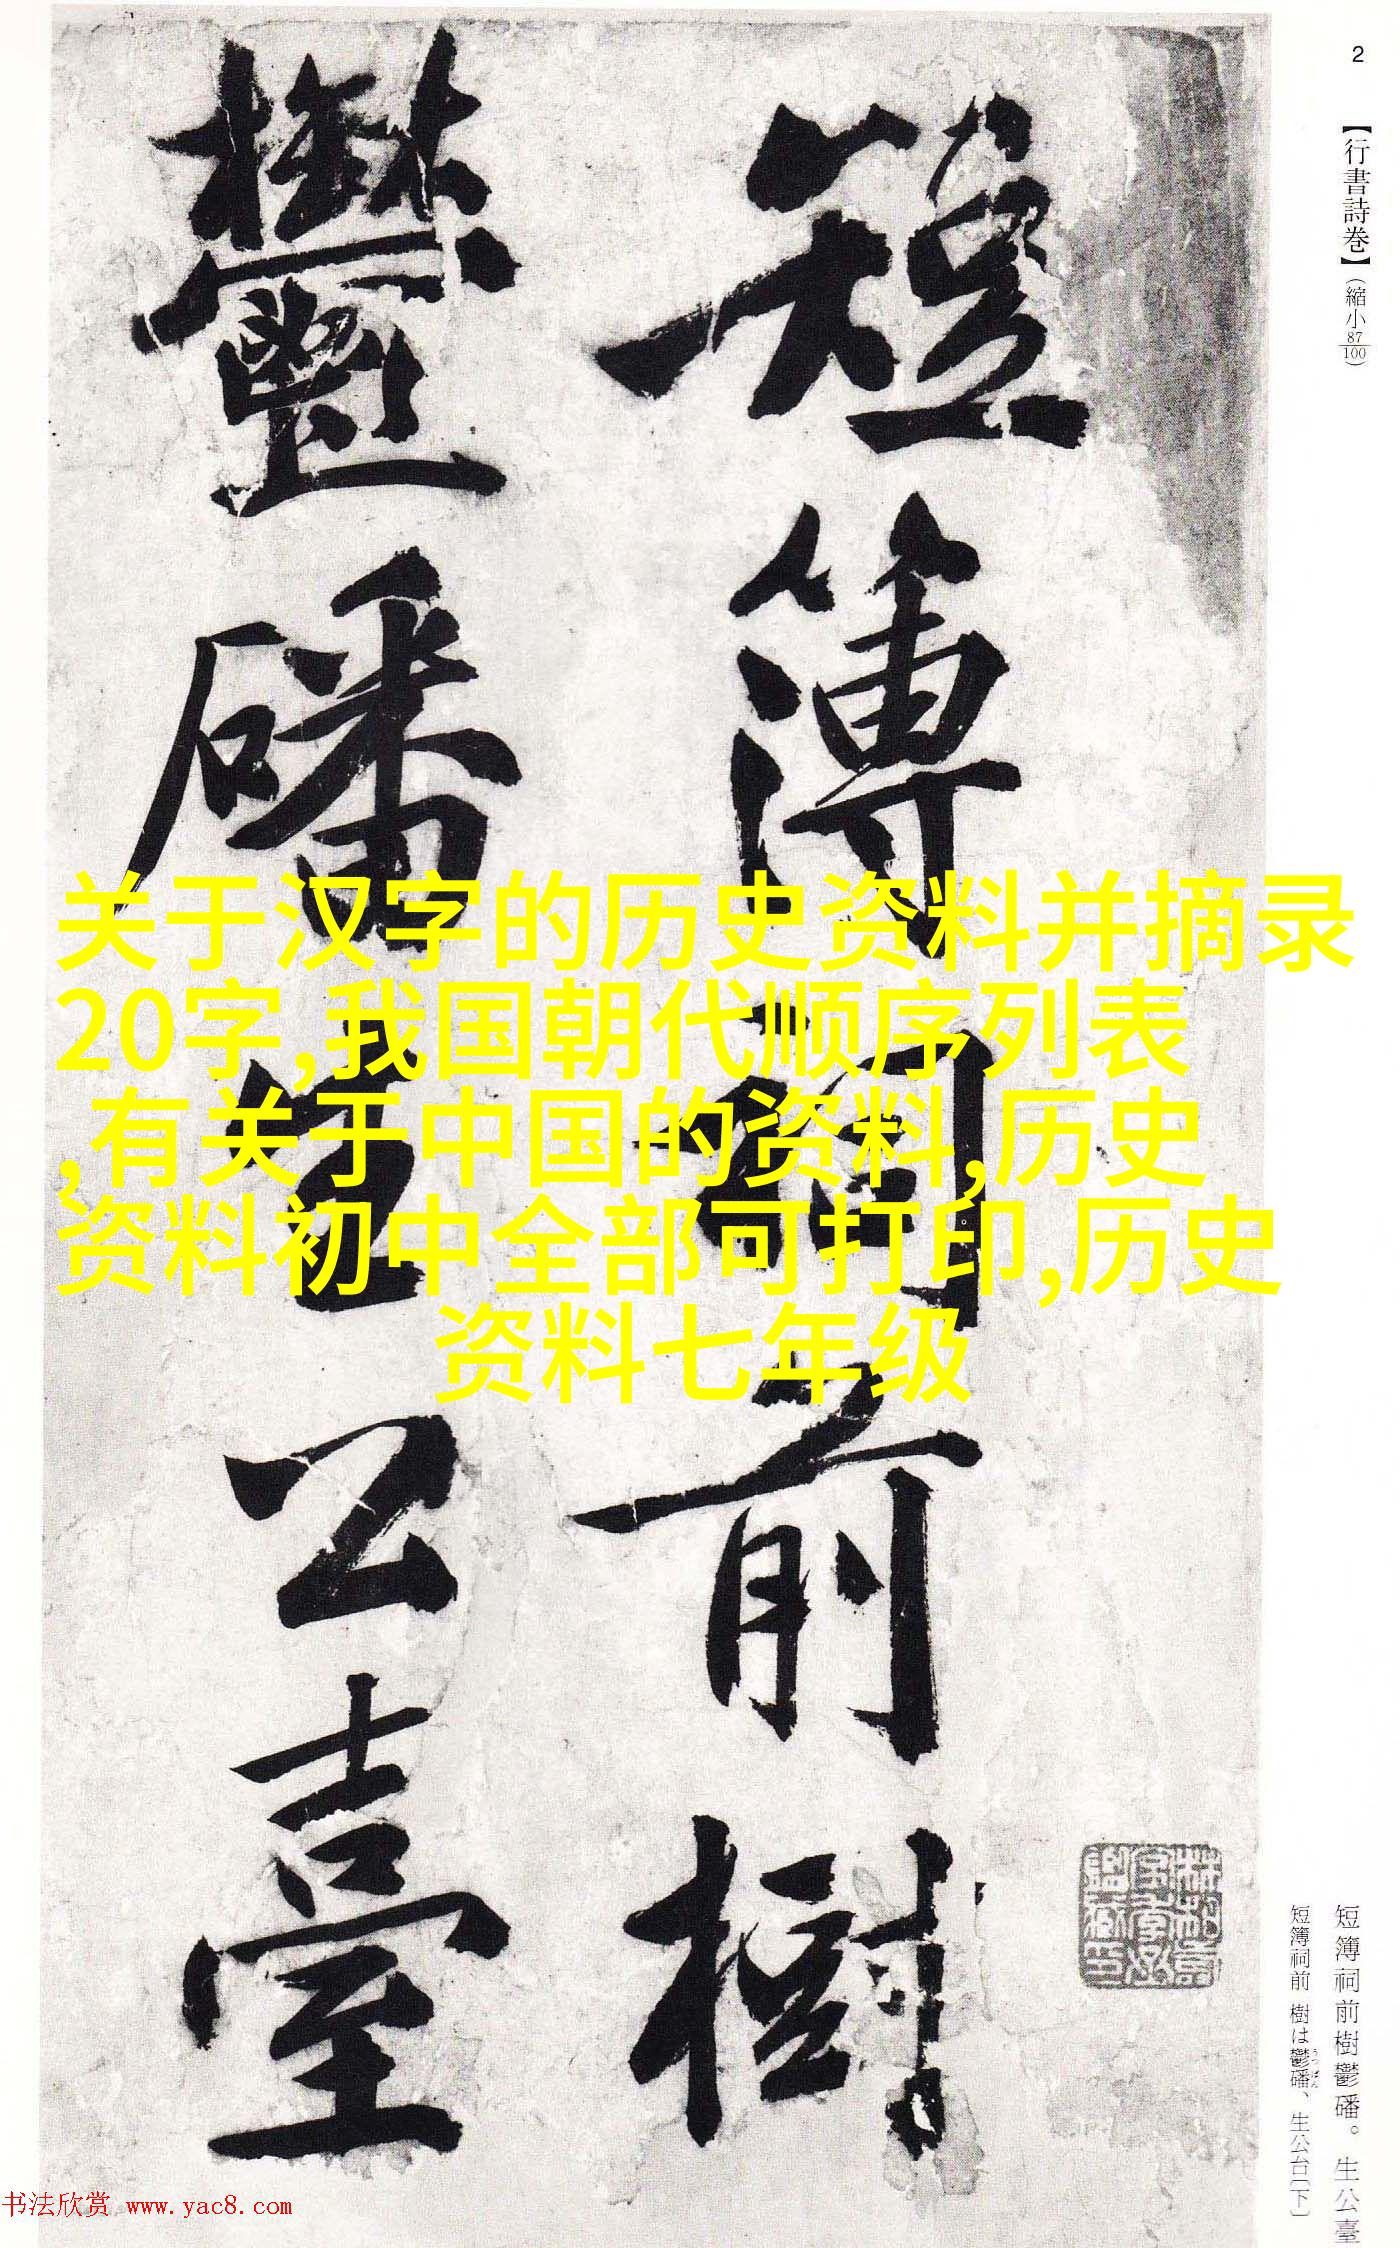 2
【行書詩巻】(縮小87/100)
短簿祠前樹
鬱磻生公臺
关于汉字的历史资料并摘录
20字,我国朝代顺序列表
,有关于中国的资料,历史
资料初中全部可打印,历史
资料七年级
短簿祠前樹鬱磻。生公臺
短簿祠前 樹は鬱磻、生公台〔下〕
うつばん
书法欣赏 www.yac8.com